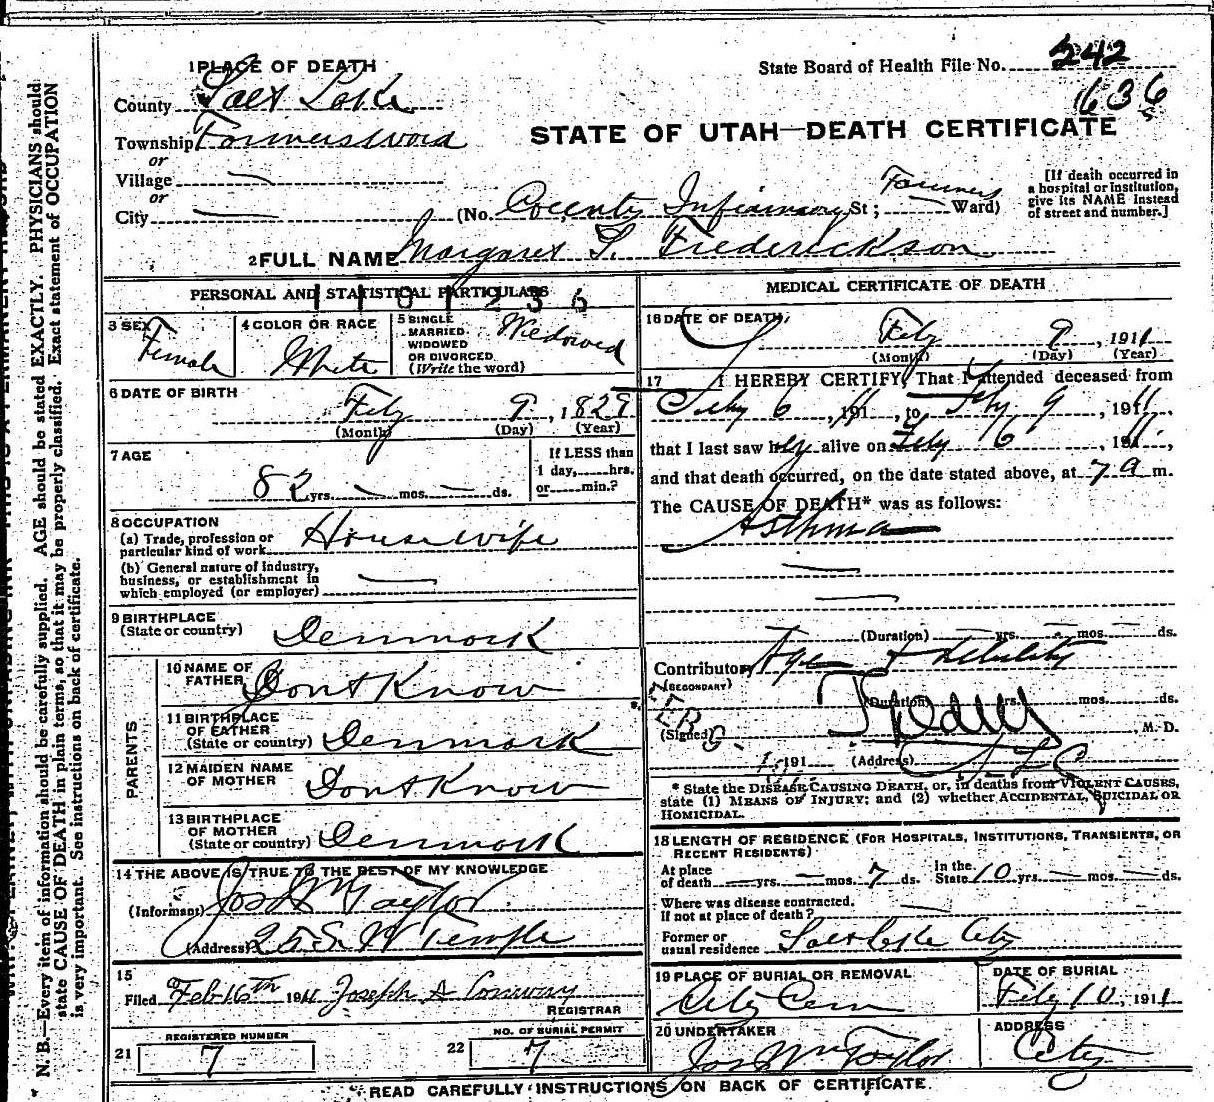 1 PLACE OF DEATH
State Board of Health File No. 242
636
County Salt Lake
STATE OF UTAH—DEATH CERTIFICATE
Township Farmersward
or
Village —
or
City —
(No. County Infirmary St; Farmers Ward)
[If death occurred in
a hospital or institution,
give its NAME instead
of street and number.]
2 FULL NAME Margaret S. Frederickson
PERSONAL AND STATISTICAL PARTICULARS
1101236
3 SEX Female
4 COLOR OR RACE White
5 SINGLE
MARRIED
WIDOWED
OR DIVORCED
(Write the word)
Widowed
6 DATE OF BIRTH
Feby 9, 1829
(Month) (Day) (Year)
7 AGE
82 yrs. — mos. — ds.
If LESS than
1 day, hrs.
or min.?
8 OCCUPATION
(a) Trade, profession or
particular kind of work Housewife
(b) General nature of industry,
business, or establishment in
which employed (or employer) —
9 BIRTHPLACE
(State or country) Denmark
PARENTS
10 NAME OF
FATHER Dont Know
11 BIRTHPLACE
OF FATHER
(State or country) Denmark
12 MAIDEN NAME
OF MOTHER Dont Know
13 BIRTHPLACE
OF MOTHER
(State or country) Denmark
14 THE ABOVE IS TRUE TO THE BEST OF MY KNOWLEDGE
(Informant) Jos Wm Taylor
(Address) 25 S. W Temple
15
Filed Feb 16th 1911 Joseph A Conway
REGISTRAR
REGISTERED NUMBER
21 7
NO. OF BURIAL PERMIT
22 7
MEDICAL CERTIFICATE OF DEATH
16 DATE OF DEATH,
Feby 9, 1911
(Month) (Day) (Year)
17 I HEREBY CERTIFY, That I attended deceased from
Feby 6, 1911, to Feby 9, 1911,
that I last saw her alive on Feby 6, 1911,
and that death occurred, on the date stated above, at 7 a m.
The CAUSE OF DEATH* was as follows:
Asthma
—
—
(Duration) — yrs. — mos. — ds.
Contributory Age & debility
(SECONDARY)
(Duration) yrs. mos. ds.
(Signed) M. D.
191 (Address) S L C
* State the DISEASE CAUSING DEATH, or, in deaths from VIOLENT CAUSES,
state (1) MEANS OF INJURY; and (2) whether ACCIDENTAL, SUICIDAL OR
HOMICIDAL.
18 LENGTH OF RESIDENCE (FOR HOSPITALS, INSTITUTIONS, TRANSIENTS, OR
RECENT RESIDENTS)
At place
of death — yrs. — mos. 7 ds.
In the
State 10 yrs. — mos. — ds.
Where was disease contracted,
If not at place of death? —
Former or
usual residence Salt Lake City
19 PLACE OF BURIAL OR REMOVAL
City Cem
DATE OF BURIAL
Feby 10, 1911
20 UNDERTAKER
Jos Wm Taylor
ADDRESS
City
READ CAREFULLY INSTRUCTIONS ON BACK OF CERTIFICATE.
N. B.—Every item of information should be carefully supplied. AGE should be stated EXACTLY. PHYSICIANS should
state CAUSE OF DEATH in plain terms, so that it may be properly classified. Exact statement of OCCUPATION
is very important. See instructions on back of certificate.